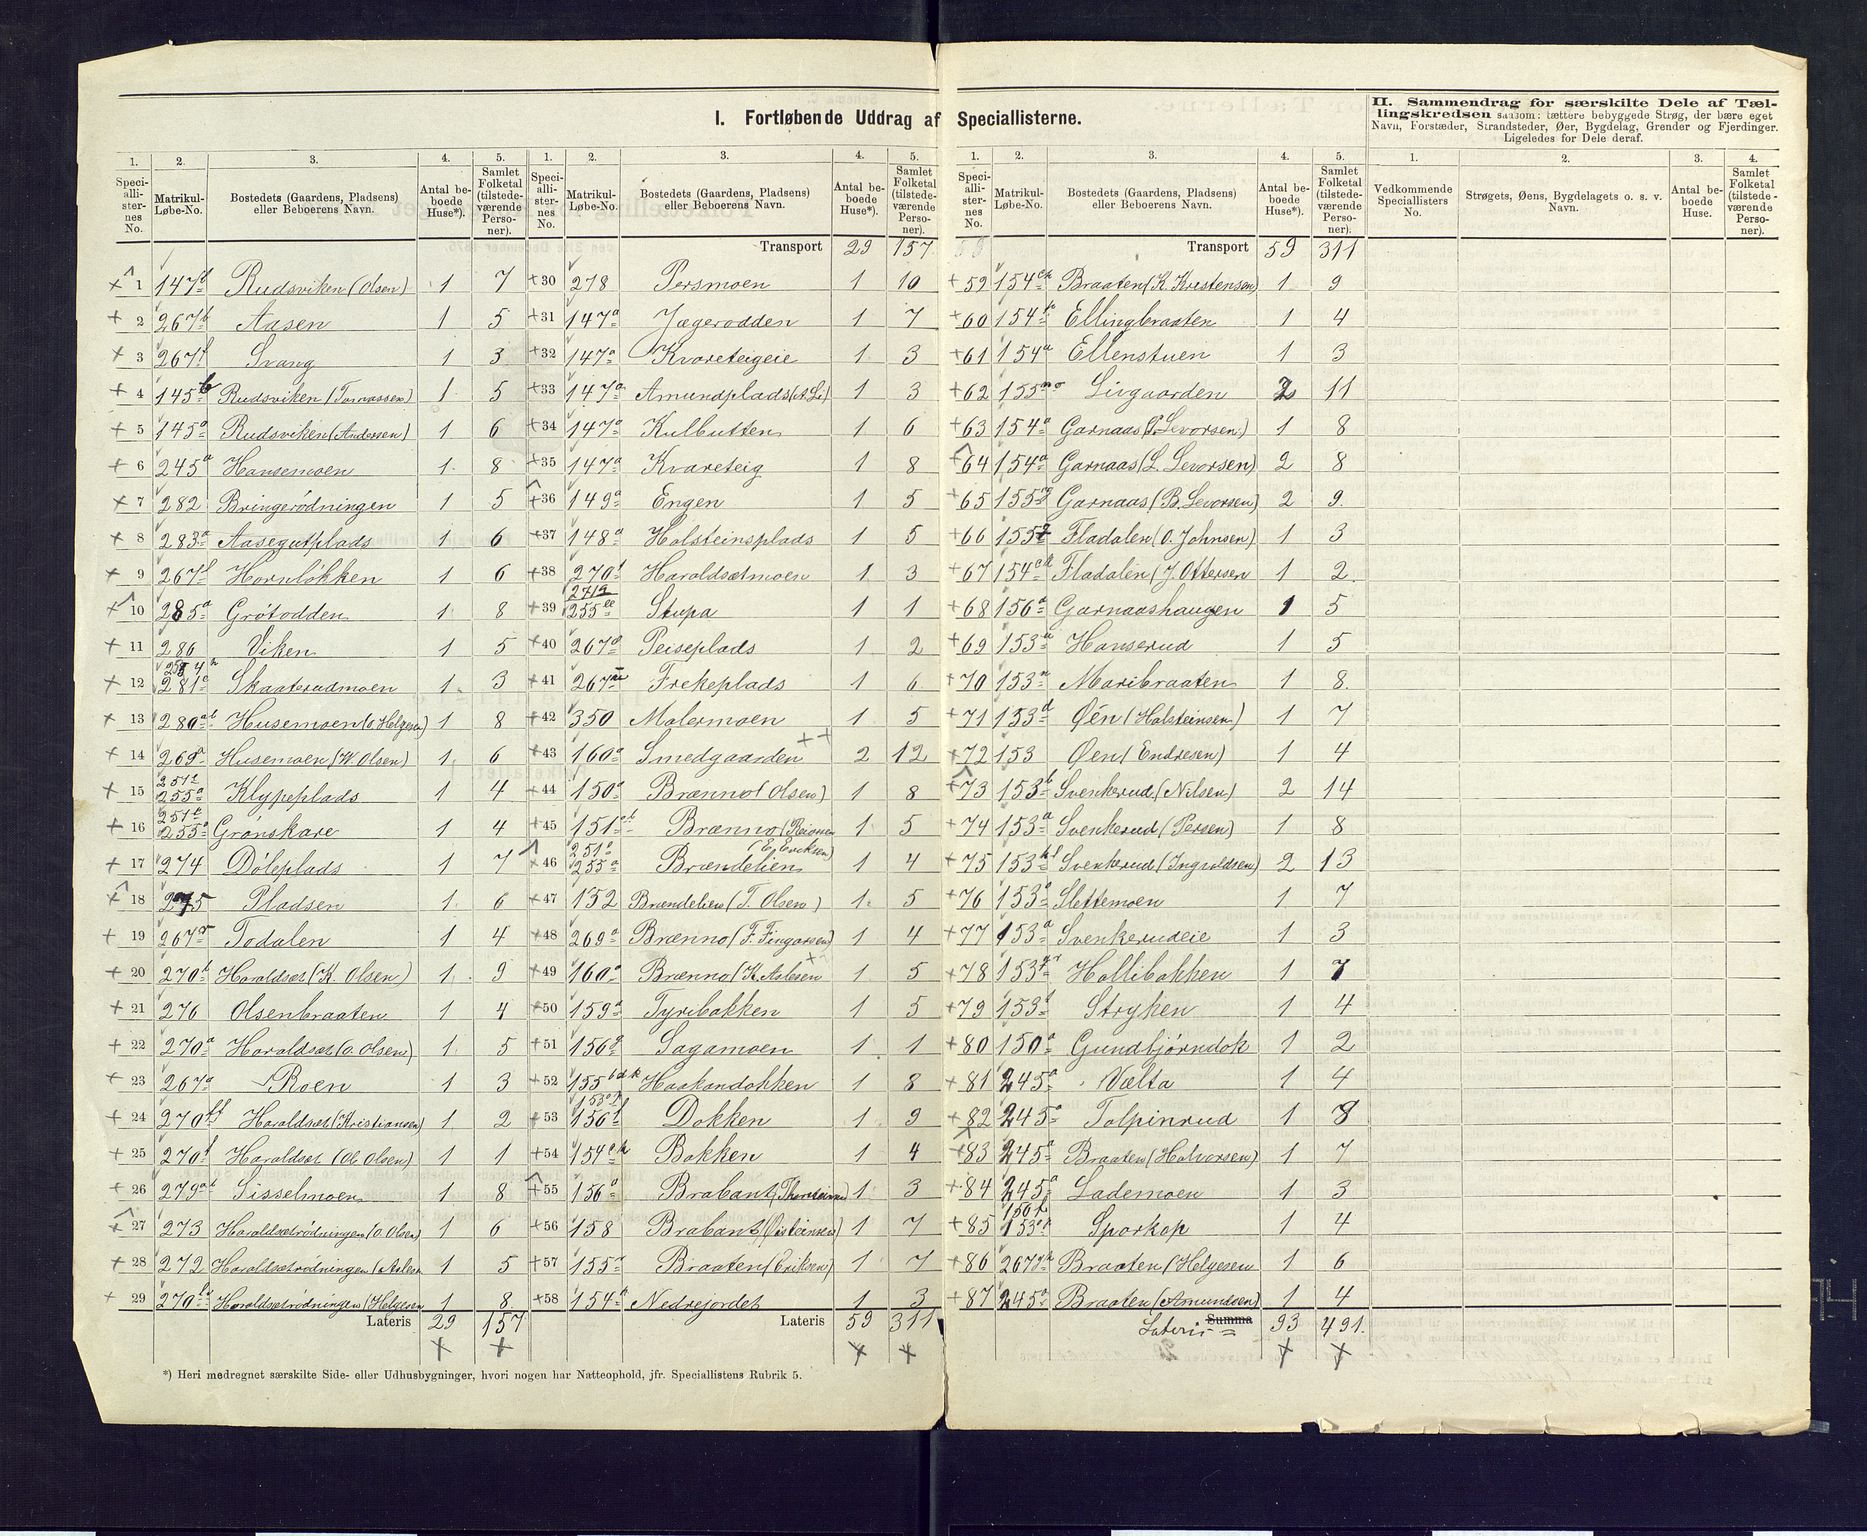 I. Fortløbende Uddrag af Speciallisterne.
II. Sammendrag for særskilte Dele af Tællingskredsen saasom: tættere bebyggede Strøg, der bære eget
Navn, Forstæder, Strandsteder, Øer, Bygdelag, Grender og Fjerdinger.
Ligeledes for Dele deraf.
1. 2. 3. 4. 5. 1. 2. 3. 4. 5. 1. 2. 3. 4. 5. 1. 2. 3. 4.
Speciallisternes No. Matrikul-Løbe-No. Bostedets (Gaardens, Pladsens) eller Beboerens Navn. Antal beboede Huse*). Samlet Folketal (tilstedeværende Personer).
Speciallisternes No. Matrikul-Løbe-No. Bostedets (Gaardens, Pladsens) eller Beboerens Navn. Antal beboede Huse*). Samlet Folketal (tilstedeværende Personer).
Speciallisternes No. Matrikul-Løbe-No. Bostedets (Gaardens, Pladsens) eller Beboerens Navn. Antal beboede Huse*). Samlet Folketal (tilstedeværende Personer).
Vedkommende Speciallisters No. Strøgets, Øens, Bygdelagets o. s. v. Navn. Antal beboede Huse. Samlet Folketal (tilstedeværende Personer).
1 147b Rudsviken (Olsen) 1 7
2 267b Aasen 1 5
3 267f Svang 1 3
4 145b Rudsviken (Tomassen) 1 5
5 145a Rudsviken (Andersen) 1 6
6 245a Hansemoen 1 8
7 282 Bringerödningen 1 5
8 283a Aasegutplads 1 6
9 267f Hornløkken 1 6
10 285a Grötodden 1 8
11 286 Viken 1 5
12 281a Skaaterudmoen 1 3
13 280ab Husemoen (O. Helgesen) 1 8
14 269a Husemoen (W. Olsen) 1 6
15 251t 255a Klypeplads 1 4
16 251t 255a Grønskare 1 4
17 274 Döleplads 1 7
18 275 Pladsen 1 6
19 267r Todalen 1 4
20 270b Haraldset (K. Olsen) 1 9
21 276 Olsenbraaten 1 4
22 270a Haraldset (O. Olsen) 1 5
23 267a Roen 1 3
24 270bf Haraldset (Kristiansen) 1 2
25 270f Haraldset (Ol. Olsen) 1 1
26 279ab Sisselmoen 1 8
27 273 Haraldsetrödningen (O. Olsen) 1 6
28 272 Haraldsetrödningen (Aslesen 1 5
29 270 Haraldsetrödningen (Helgesen 1 8
Lateris 29 157
Transport 29 157
30 278 Persmoen 1 10
31 147a Jægerodden 1 7
32 147a Kvareteigeie 1 3
33 147a Amundplads (A. Li) 1 3
34 147a Kulbutten 1 6
35 147a Kvareteig 1 8
36 149a Engen 1 5
37 148a Holsteinsplads 1 5
38 270f Haraldsetmoen 1 3
39 271a 255ll Stupa 1 1
40 267a Peiseplads 1 2
41 267m Frekeplads 1 6
42 350 Malermoen 1 5
43 160a Smedgaarden 2 12
44 150a Brænno (Olsen) 1 8
45 151ab Brænno (Reiersen 1 5
46 251a 255a Brændelien (E. Eriksen) 1 4
47 152 Brændelien (T. Olsen) 1 5
48 269a Brænno (F. Fingarsen) 1 4
49 160a Brænno (K. Aslesen 1 5
50 159a Tyribakken 1 5
51 156g Sagamoen 1 1
52 155bdk Haakandokken 1 8
53 156f Dokken 1 9
54 154ch Bakken 1 4
55 156a Brabant (Thorsteinsen) 1 3
56 158 Brabant (Østeinsen) 1 7
57 155r Braaten (Eriksen) 1 7
58 154a Nedrejordet 1 3
Lateris 59 311
Transport 59 311
59 154ch Braaten (K. Kristensen) 1 9
60 154b Ellingbraaten 1 4
61 154a Ellenstuen 1 3
62 155mo Livgaarden 2 11
63 154a Garnaas (P. Levorsen) 1 8
64 154a Garnaas (L. Levorsen) 2 8
65 155 Garnaas (B. Levorsen) 2 9
66 155 Fladalen (O. Johnsen) 1 3
67 154ad Fladalen (J. Ottersen 1 2
68 156a Garnaashaugen 1 5
69 153a Hanserud 1 5
70 153a Maribraaten 1 8
71 153d Øen (Holsteinsen) 1 7
72 153 Øen (Endresen) 1 4
73 153b Svenkerud (Nilsen) 2 14
74 153a Svenkerud (Persen) 1 8
75 153hl Svenkerud (Ingvaldsen) 2 13
76 153a Slettemoen 1 7
77 153a Svenkerudeie 1 3
78 153 Hollibakken 1 7
79 153f Stryken 1 4
80 150a Gundbjörndok 1 2
81 245a Vælta 1 4
82 245a Tolpinrud 1 8
83 245a Braaten (Halvorsen) 1 7
84 245a Lademoen 1 3
85 156f 153 Sporkop 1 4
86 267 Braaten (Helgesen 1 6
87 245a Braaten (Amundsen) 1 4
Summa Lateris 93 491.
*) Heri medregnet særskilte Side- eller Udhusbygninger, hvori nogen har Natteophold, jfr. Speciallistens Rubrik 5.